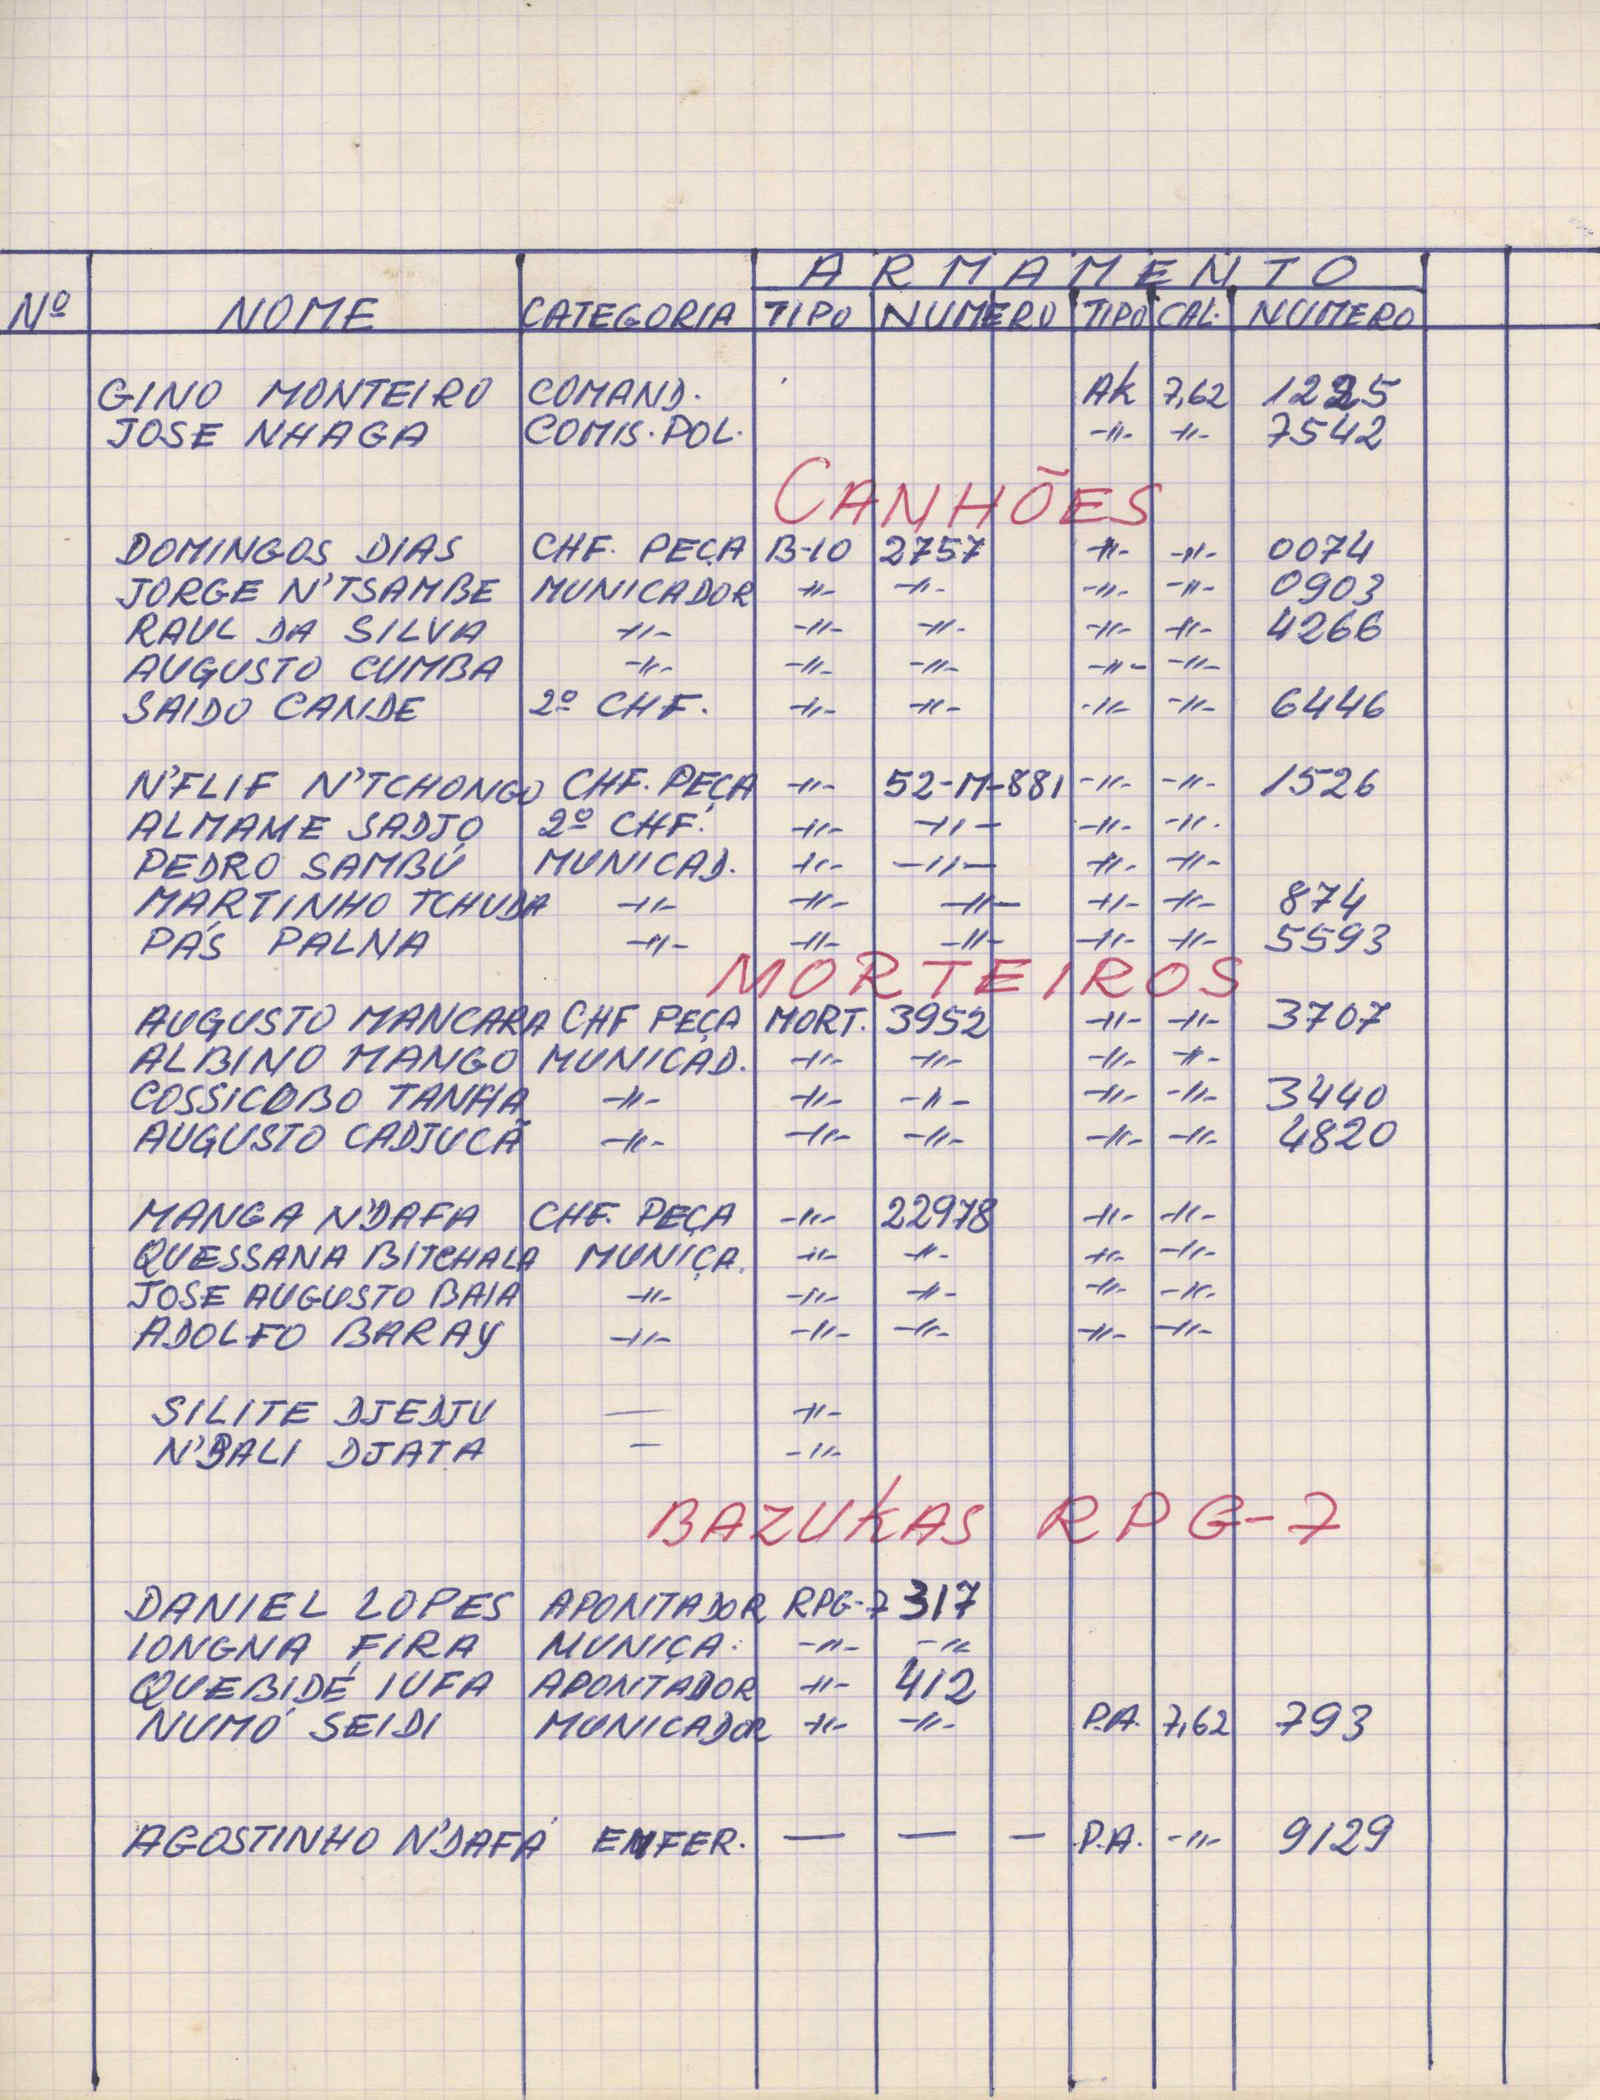 ARMAMENTO
Nº NOME CATEGORIA TIPO NUMERO TIPO CAL. NUMERO
GINO MONTEIRO COMAND. AK 7,62 1225
JOSE NHAGA COMIS. POL. -〃- -〃- 7542
CANHÕES
DOMINGOS DIAS CHF. PEÇA B-10 2757 -〃- -〃- 0074
JORGE N'TSAMBE MUNICADOR -〃- -〃- -〃- -〃- 0903
RAUL DA SILVA -〃- -〃- -〃- -〃- -〃- 4266
AUGUSTO CUMBA -〃- -〃- -〃- -〃- -〃-
SAIDO CANDE 2º CHF. -〃- -〃- -〃- -〃- 6446
N'FLIF N'TCHONGO CHF. PEÇA -〃- 52-M-881 -〃- -〃- 1526
ALMAME SADJO 2º CHF. -〃- -〃- -〃- -〃-
PEDRO SAMBÚ MUNICAD. -〃- -〃- -〃- -〃-
MARTINHO TCHUDA -〃- -〃- -〃- -〃- -〃- 874
PÁS PALNA -〃- -〃- -〃- -〃- -〃- 5593
MORTEIROS
AUGUSTO MANCARA CHF PEÇA MORT. 3952 -〃- -〃- 3707
ALBINO MANGO MUNICAD. -〃- -〃- -〃- -〃-
COSSICOBO TANHA -〃- -〃- -〃- -〃- -〃- 3440
AUGUSTO CADJUCÃ -〃- -〃- -〃- -〃- -〃- 4820
MANGA N'DAFA CHF. PEÇA -〃- 22978 -〃- -〃-
QUESSANA BITCHALA MUNIÇA. -〃- -〃- -〃- -〃-
JOSE AUGUSTO BAIA -〃- -〃- -〃- -〃- -〃-
ADOLFO BARAY -〃- -〃- -〃- -〃- -〃-
SILITE DJEDJU — -〃-
N'BALI DJATA — -〃-
BAZUKAS RPG-7
DANIEL LOPES APONTADOR RPG-7 317
IONGNA FIRA MUNIÇA. -〃- -〃-
QUEBIDÉ IUFA APONTADOR -〃- 412
NUMÓ SEIDI MUNICADOR -〃- -〃- P.A. 7,62 793
AGOSTINHO N'DAFÁ ENFER. — — — P.A. -〃- 9129